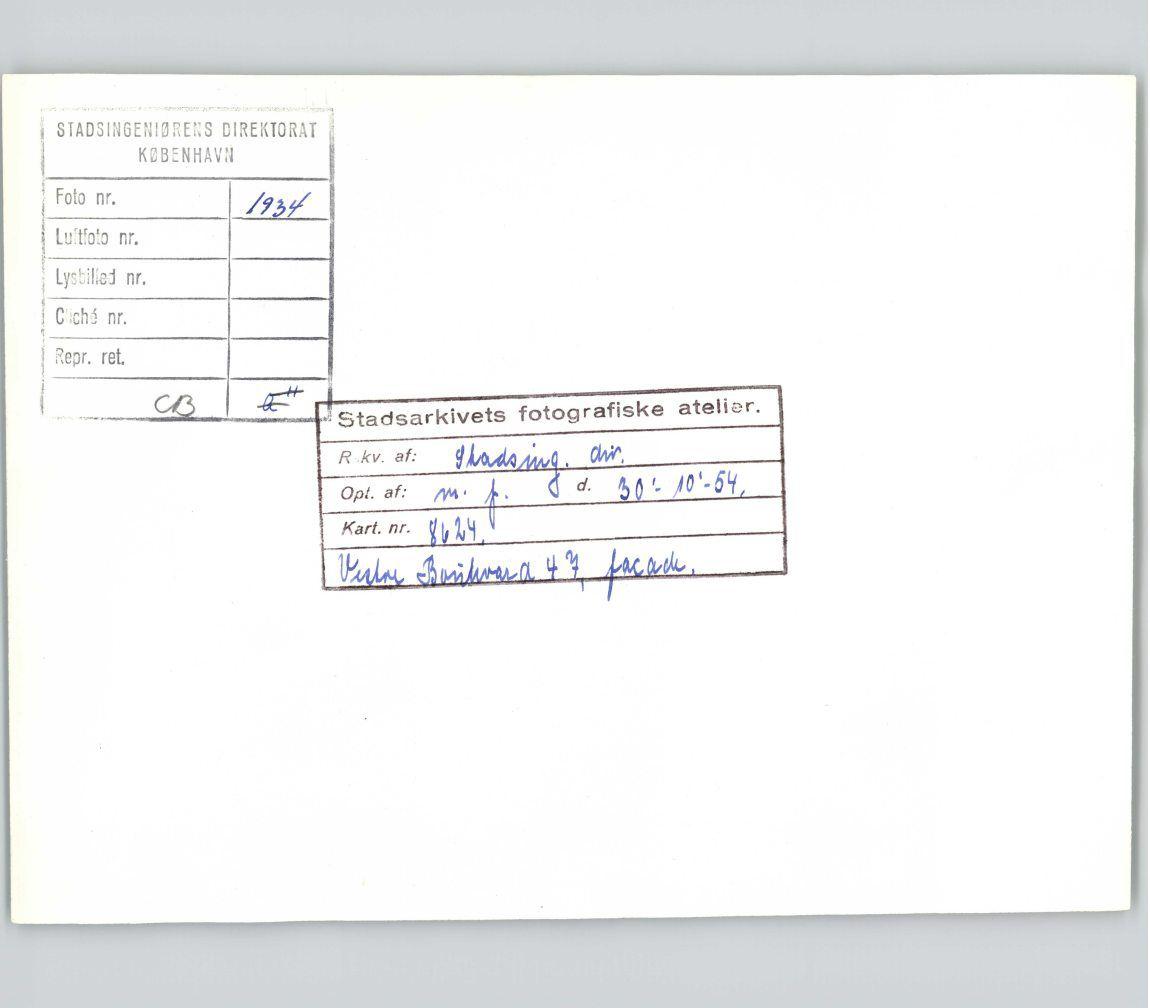 STADSINGENIØRENS DIREKTORAT
KØBENHAVN
Foto nr. 1934
Luftfoto nr.
Lysbilled nr.
Cliché nr.
Repr. ret.
CB
Stadsarkivets fotografiske atelier.
Rekv. af: Stadsing. dir.
Opt. af: m. p. d. 30'-10'-54,
Kart. nr. 8624,
Vestre Boulevard 47, facade.